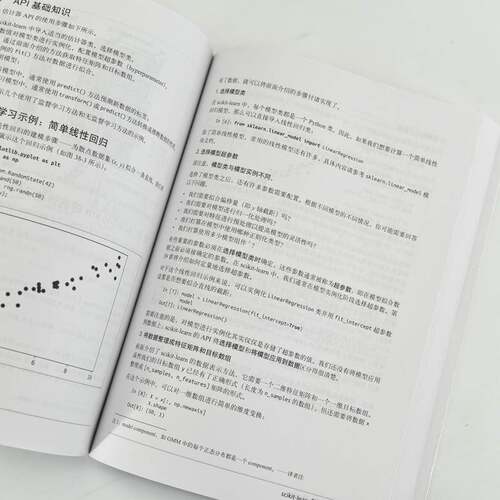 API 基础知识
估计器 API 的使用步骤如下所示。
scikit-learn 中导入适当的估计器类，选择模型类。
数值对模型类进行实例化，配置模型超参数（hyperparameter）。
通过前面介绍的方法获取特征矩阵和目标数组。
例的 fit() 方法对数据进行拟合。
模型中，通常使用 predict() 方法预测新数据的标签；
习模型中，通常使用 transform() 或 predict() 方法
示几个使用了监督学习方法和无监督学习方法的示例。
学习示例：简单线性回归
演示这个回归示例（如图 38-3 所示）。
tlib.pyplot as plt
as np
RandomState(42)
rand(50)
rng.randn(50)
6 8 10
有了数据，就可以将前面介绍的步骤付诸实现了。
1. 选择模型类
在 scikit-learn 中，每个模型类都是一个 Python 类。因此，如果我们想要计算一个简单线性
回归模型，那么可以直接导入线性回归类：
In [6]: from sklearn.linear_model import LinearRegression
除了简单线性模型，常用的线性模型还有许多，具体内容请参考 sklearn.linear_model 模
块文档。
2. 选择模型超参数
请注意，模型类与模型实例不同。
选择了模型类之后，还有许多参数需要配置。根据不同模型的不同情况，你可能需要回答
以下问题。
• 我们想要拟合偏移量（即 y 轴截距）吗？
• 我们需要对模型进行归一化处理吗？
• 我们需要对特征进行预处理以提高模型的灵活性吗？
• 我们打算在模型中使用哪种正则化类型？
• 我们打算使用多少模型组件¹？
有些重要的参数必须在选择模型类时确定。这些参数通常被称为超参数，即在模型拟合数
据之前必须被确定的参数。在 scikit-learn 中，我们通常在模型实例化阶段选择超参数。第
对于这个线性回归示例来说，可以实例化 LinearRegression 类并用 fit_intercept 超参数
设置是否想要拟合直线的截距：
In [7]: model = LinearRegression(fit_intercept=True)
model
Out[7]: LinearRegression()
需要注意的是，对模型进行实例化其实仅仅是存储了超参数的值。我们还没有将模型应用
到数据上：scikit-learn 的 API 将选择模型和将模型应用到数据区分得很清楚。
3. 将数据整理成特征矩阵和目标数组
前面介绍了 scikit-learn 的数据表示方法，它需要一个二维特征矩阵和一个一维目标数组。
虽然我们的目标数组 y 已经有了正确形式（长度为 n_samples 的数组），但还需要将数据 x
整理成 [n_samples, n_features] 矩阵的形式。
在这个示例中，可以对一维数组进行简单的维度变换：
In [8]: X = x[:, np.newaxis]
X.shape
Out[8]: (50, 1)
注1：model component，如 GMM 中的每个正态分布都是一个 component。——译者注